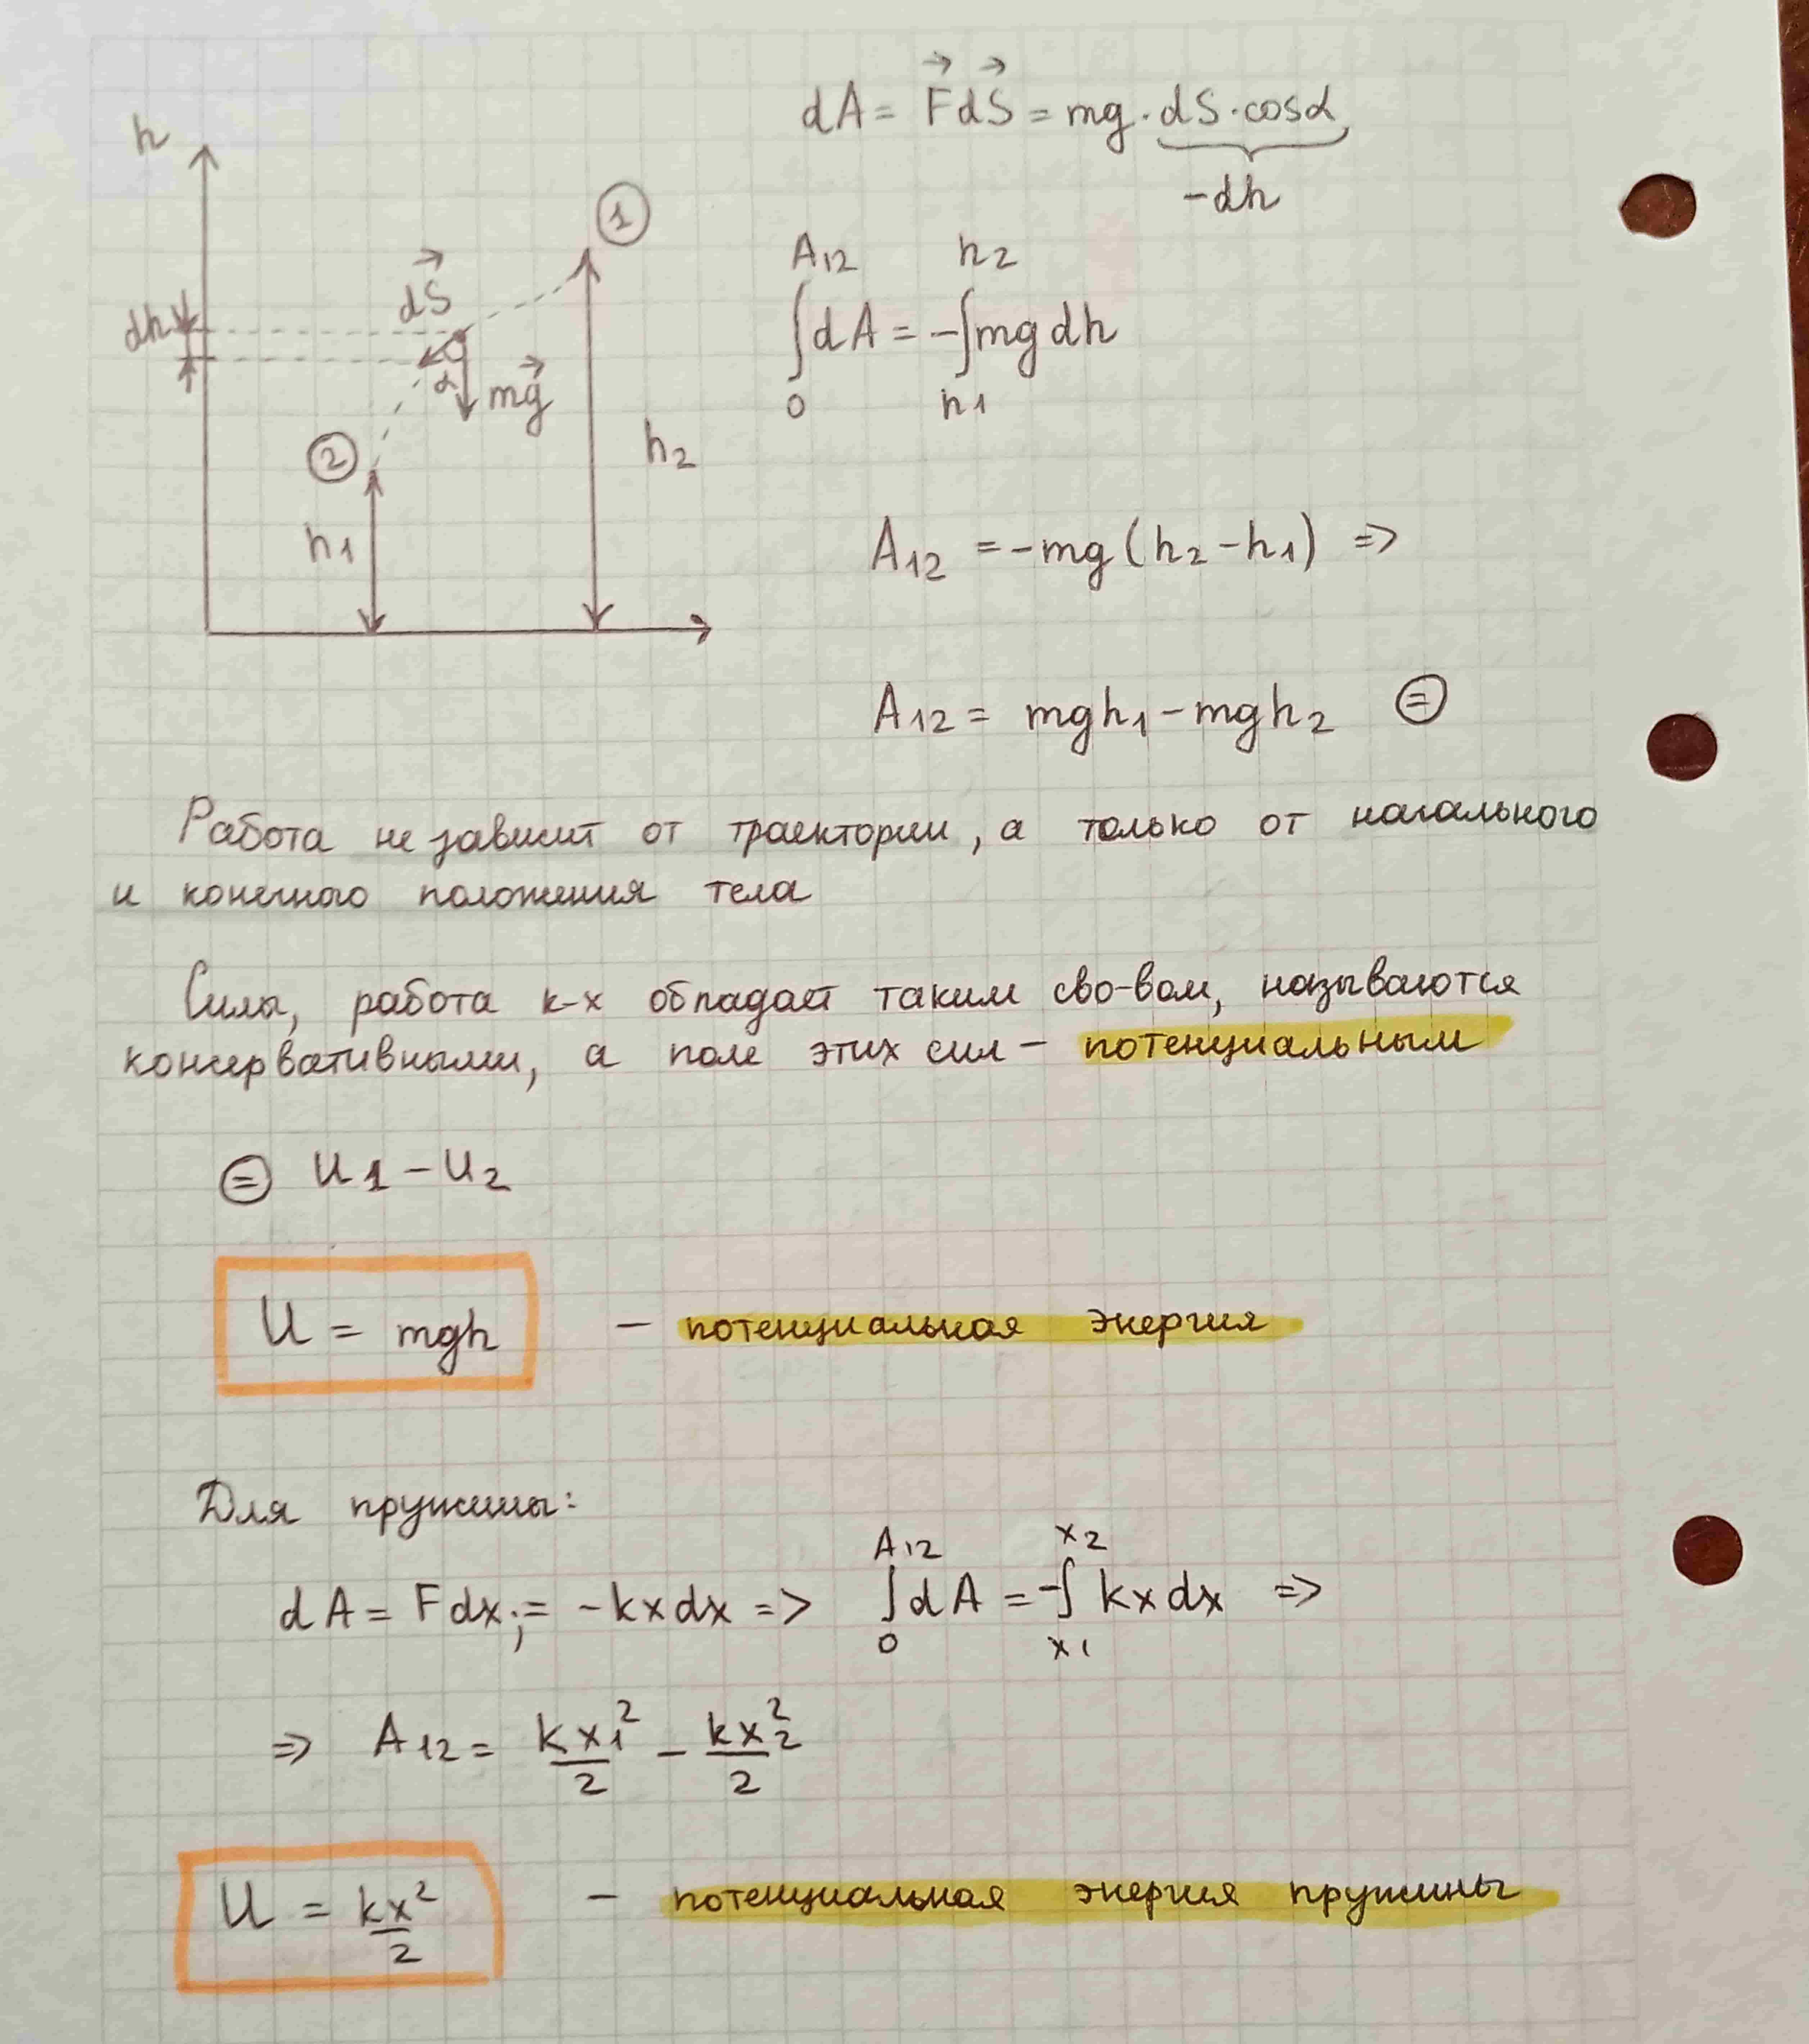 dA = F⃗dS⃗ = mg · dS · cosα
-dh
h
①
dS⃗
dh
α
mg⃗
②
h₁
h₂
A₁₂ h₂
∫dA = -∫mg dh
0 h₁
A₁₂ = -mg (h₂ - h₁) =>
A₁₂ = mgh₁ - mgh₂ ⊜
Работа не зависит от траектории, а только от начального
и конечного положения тела
Силы, работа к-х обладает таким сво-вом, называются
консервативными, а поле этих сил - потенциальным
⊜ U₁ - U₂
U = mgh - потенциальная энергия
Для пружины:
A₁₂ x₂
dA = Fdx; = -kxdx => ∫dA = -∫ kxdx =>
0 x₁
=> A₁₂ = kx₁²/2 - kx₂²/2
U = kx²/2 - потенциальная энергия пружины